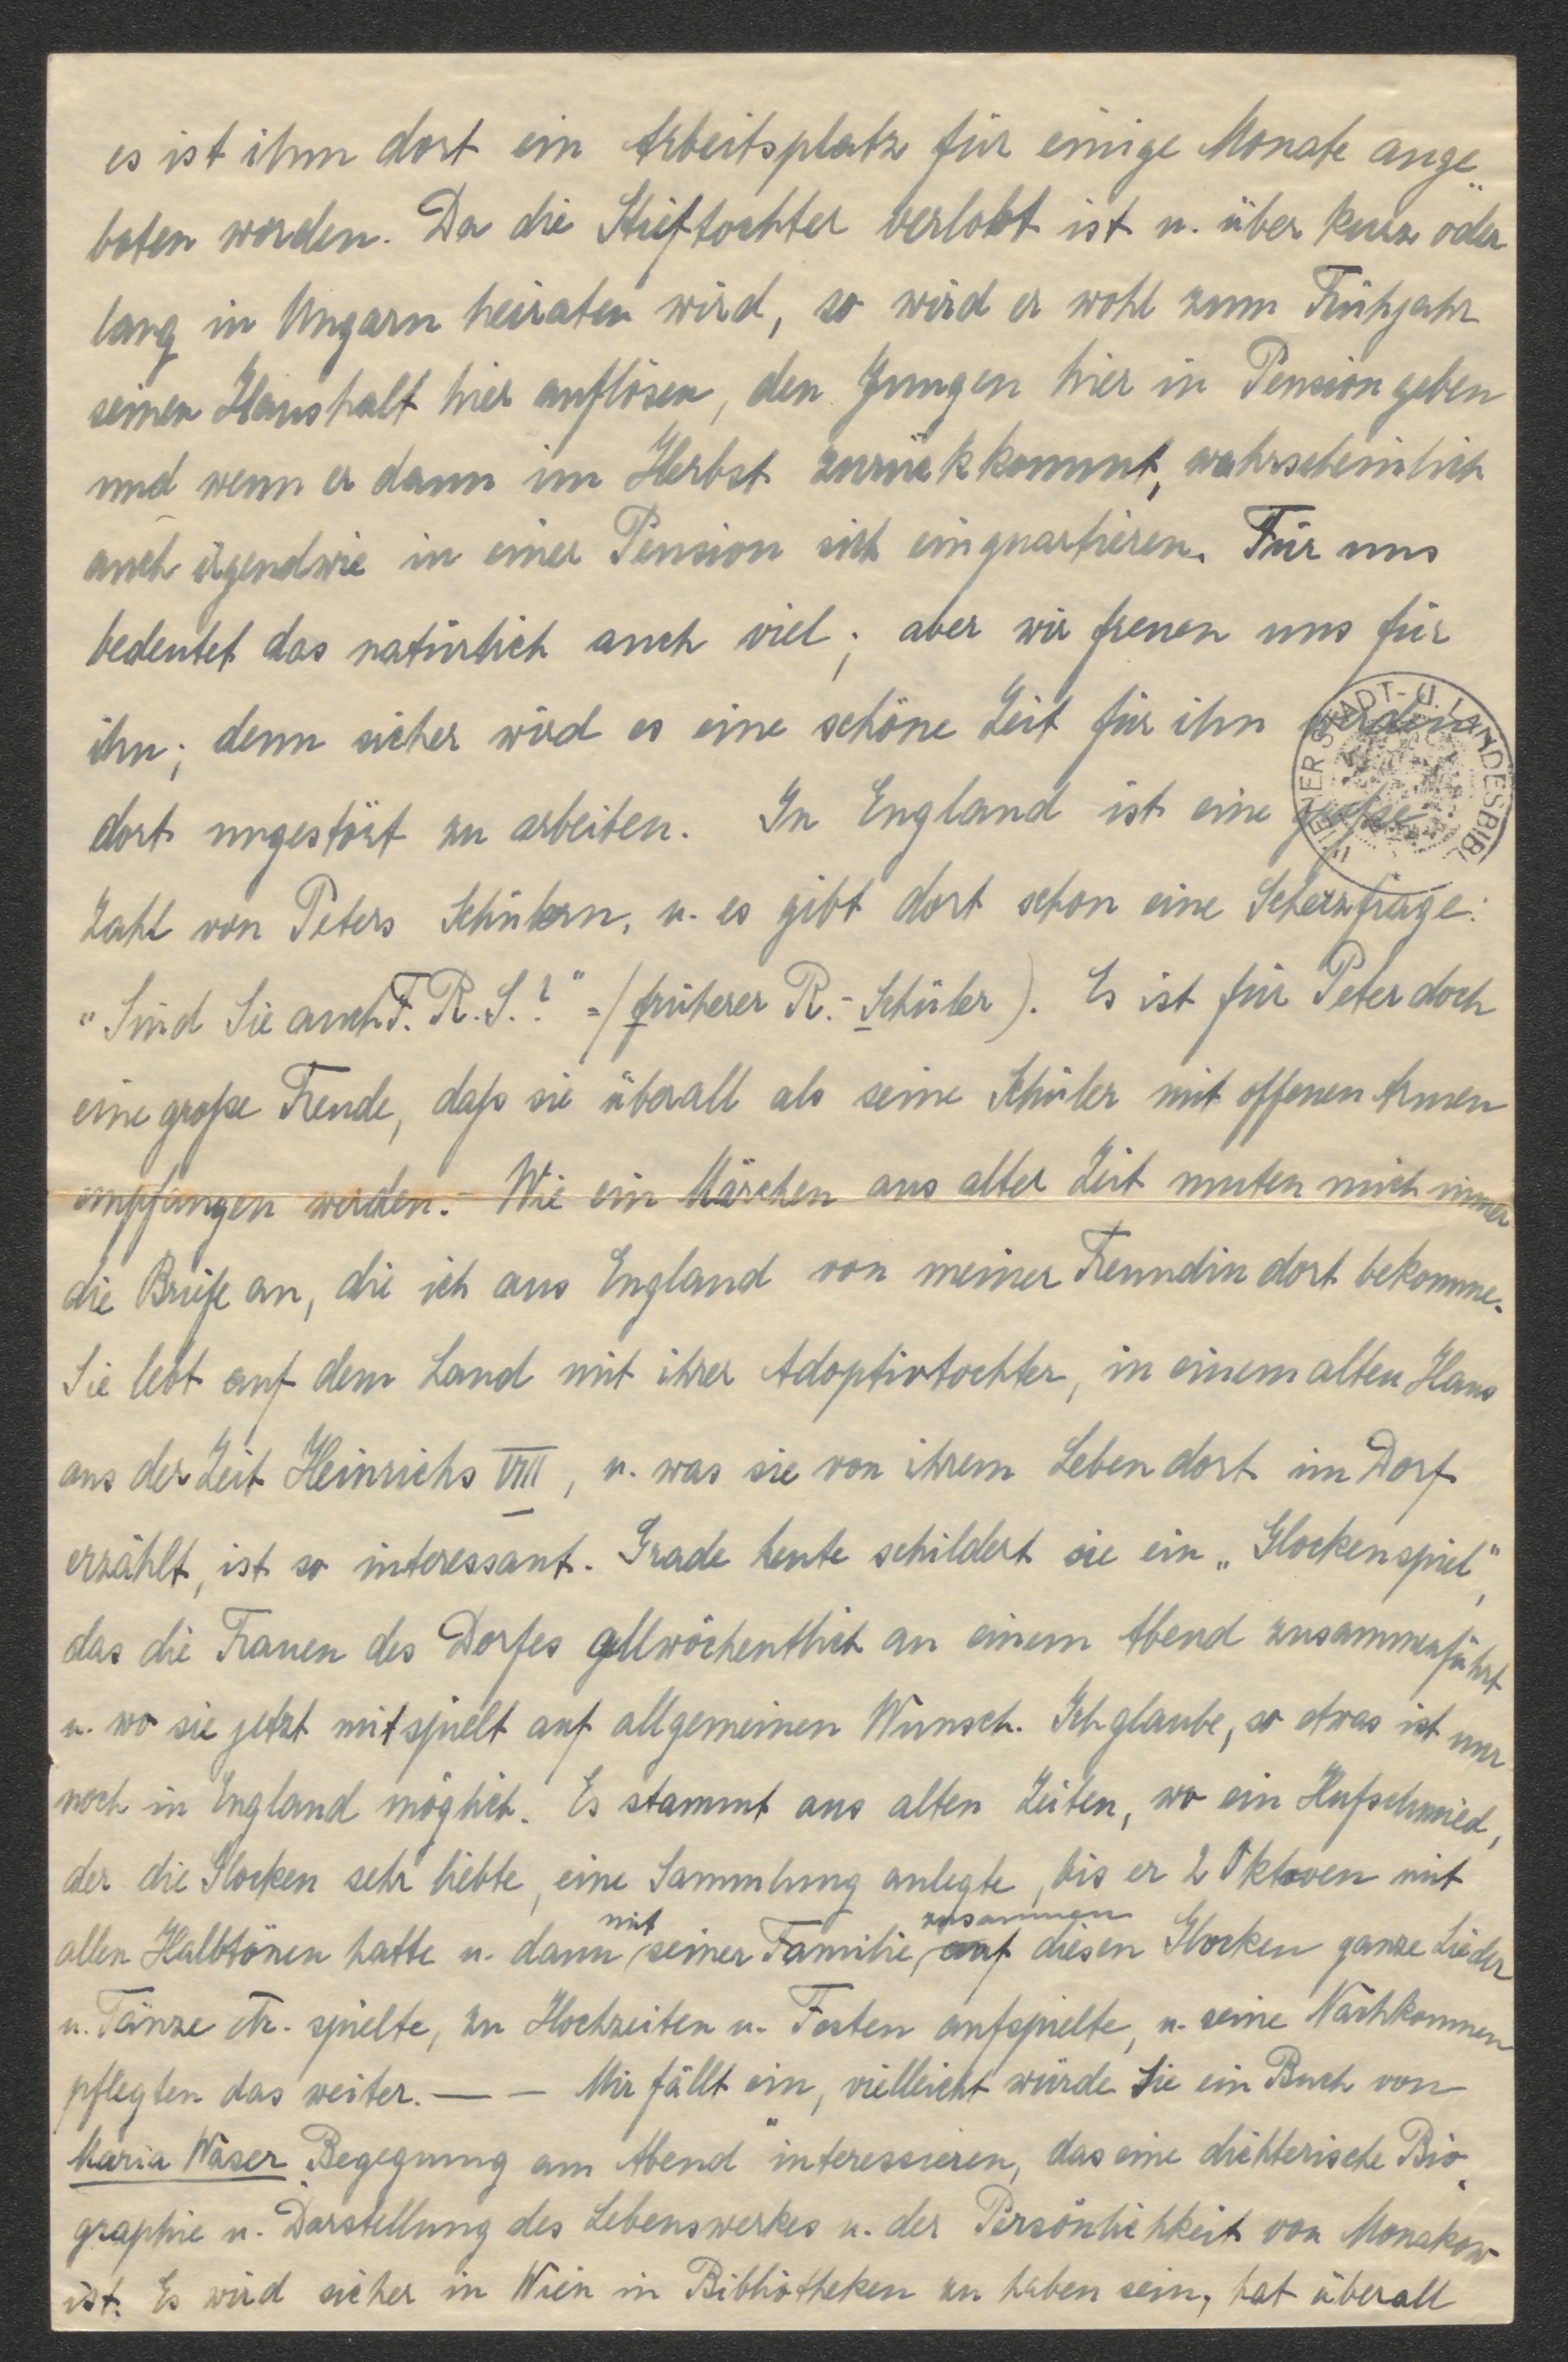 es ist ihm dort ein Arbeitsplatz für einige Monate ange-
boten worden. Da die Stieftochter verlobt ist u. über kurz oder
lang in Ungarn heiraten wird, so wird er wohl zum Frühjahr
seinen Haushalt hier auflösen, den Jungen hier in Pension geben
und wenn er dann im Herbst zurückkommt, wahrscheinlich
auch irgendwie in einer Pension sich einquartieren. Für uns
bedeutet das natürlich auch viel; aber wir freuen uns für
ihn; denn sicher wird es eine schöne Zeit für ihn werden
dort ungestört zu arbeiten. In England ist eine große
WIENER STADT- U. LANDESBIBL.
Zahl von Peters Schülern, u. es gibt dort schon eine Scherzfrage:
"Sind Sie auch F. R. S.?" =(früherer R.-Schüler). Es ist für Peter doch
eine große Freude, daß sie überall als seine Schüler mit offenen Armen
empfangen werden. - Wie ein Märchen aus alter Zeit muten mich immer
die Briefe an, die ich aus England von meiner Freundin dort bekomme.
Sie lebt auf dem Land mit ihrer Adoptivtochter, in einem alten Haus
aus der Zeit Heinrichs VIII, u. was sie von ihrem Leben dort im Dorf
erzählt, ist so interessant. Grade heute schildert sie ein „Glockenspiel",
das die Frauen des Dorfes allwöchentlich an einem Abend zusammenführt
u. wo sie jetzt mitspielt auf allgemeinen Wunsch. Ich glaube, so etwas ist nur
noch in England möglich. Es stammt aus alten Zeiten, wo ein Hufschmied,
der die Glocken sehr liebte, eine Sammlung anlegte, bis er 2 Oktaven mit
allen Halbtönen hatte u. dann mit seiner Familie zusammen auf diesen Glocken ganze Lieder
u. Tänze etc. spielte, zu Hochzeiten u. Festen aufspielte, u. seine Nachkommen
pflegten das weiter. — — Mir fällt ein, vielleicht würde Sie ein Buch von
Maria Wäser „Begegnung am Abend" interessieren, das eine dichterische Bio-
graphie u. Darstellung des Lebenswerkes u. der Persönlichkeit von Monakow
ist. Es wird sicher in Wien in Bibliotheken zu haben sein, hat überall